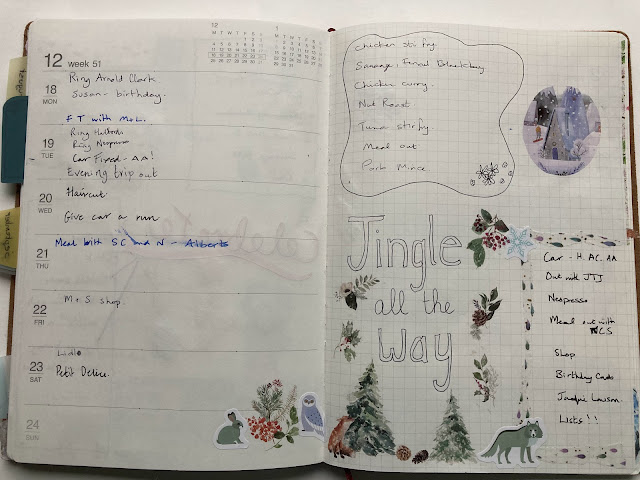 12 week 51
18
MON
Ring Arnold Clark.
Susan - birthday.
F T with M+L.
19
TUE
Ring Halfords
Ring Nespresso
Car Fixed - AA!
Evening trip out
20
WED
Haircut.
Give car a run
21
THU
Meal with SC and N - Alberts
22
FRI
M+S shop
23
SAT
Lidl
Petit Delice.
24
SUN
12
1
Chicken stir fry
Sausage, Fennel
Chicken curry.
Nut Roast
Tuna stirfry.
Meal out
Pork Mince
Jingle
all the
Way
Car - H, AC, AA
Out with JTJ
Nespresso
Meal out with
NCS
Shop
Birthday Cards
Jacquie Lawson
Lists!!